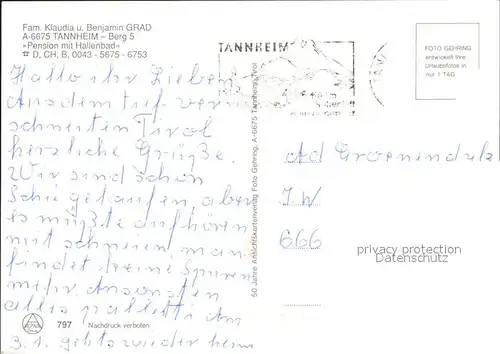 Fam. Klaudia u. Benjamin GRAD
A-6675 TANNHEIM – Berg 5
»Pension mit Hallenbad«
D, CH, B, 0043 - 5675 - 6753
TANNHEIM
FOTO GEHRING
entwickelt Ihre
Urlaubsfotos in
nur 1 TAG
Hallo ihr Lieben
Aus dem tief ver
schneiten Tirol
herzliche Grüße.
Wir sind schon
Schie gelaufen aber
es müßte aufhören
mit schneien, man
findet keine Spuren
mehr. Ansonsten
alles paletti Am
3.1. gehts wieder heim
60 Jahre Ansichtskartenverlag Foto Gehring, A-6675 Tannheim, Tirol
Ad Groenendal
I W
666
privacy protection
Datenschutz
797 Nachdruck verboten